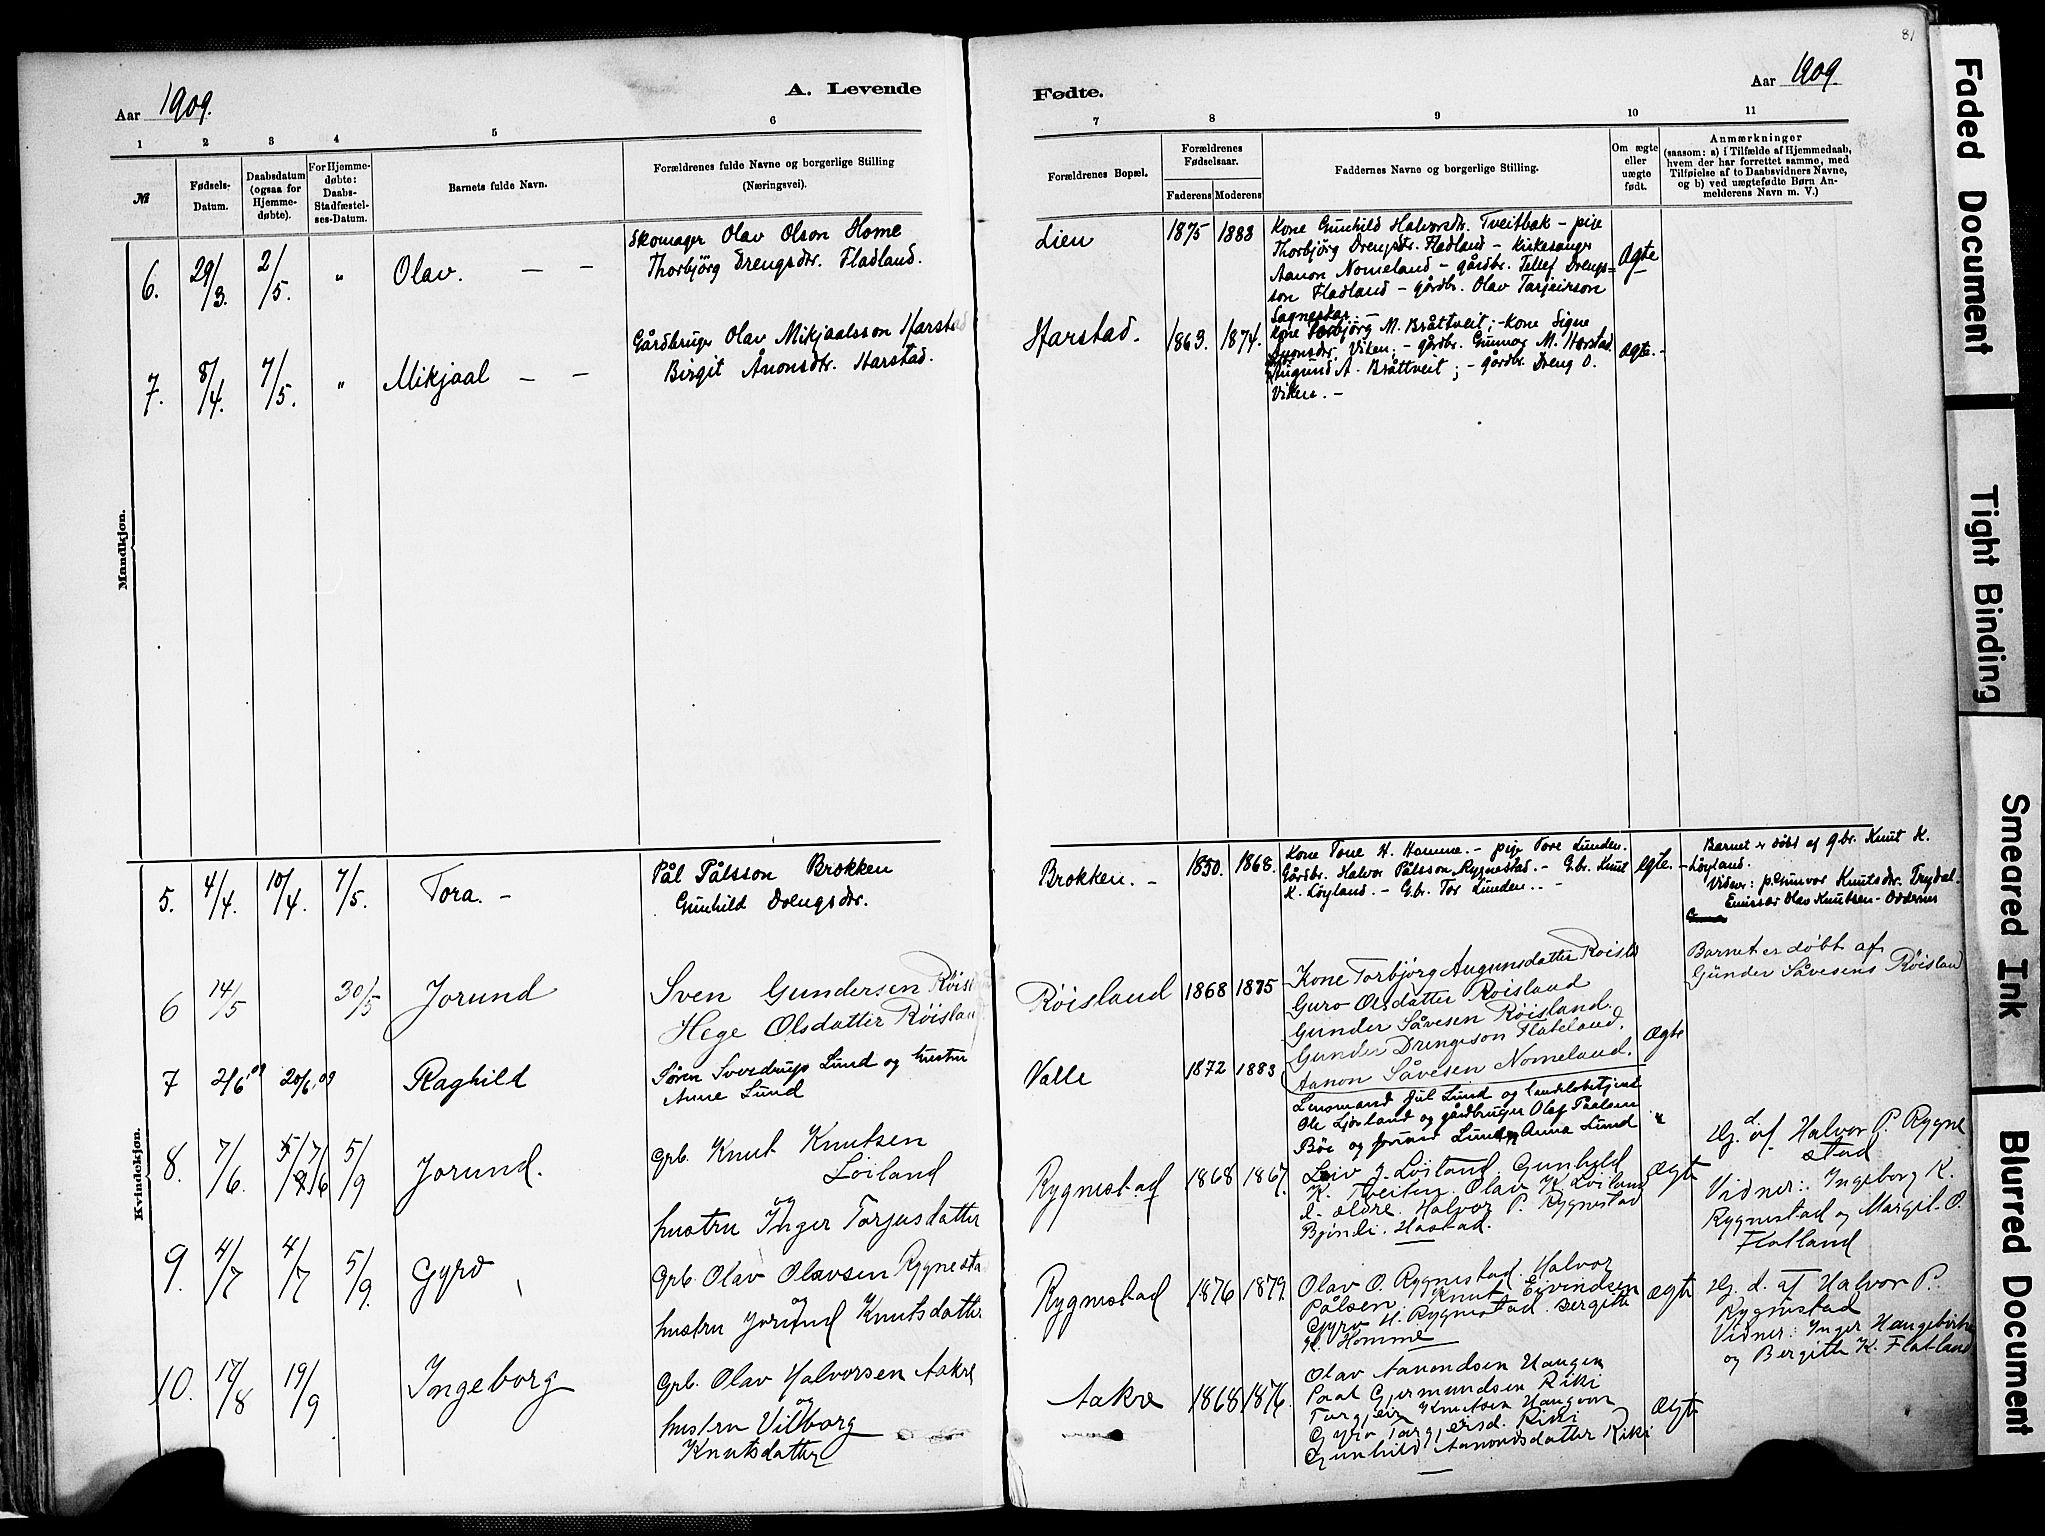 81
Aar 1909.
A. Levende
Fødte.
Aar 1909
1 2 3 4 5 6
7 8 9 10 11
№
Fødsels-
Datum.
Daabsdatum
(ogsaa for
Hjemme-
døbte).
For Hjemme-
døbte:
Daabs-
Stadfæstel-
ses-Datum.
Barnets fulde Navn.
Forældrenes fulde Navne og borgerlige Stilling
(Næringsvei).
Forældrenes Bopæl.
Forældrenes
Fødselsaar.
Faderens Moderens
Faddernes Navne og borgerlige Stilling.
Om ægte
eller
uægte
født.
Anmærkninger
(saasom: a) i Tilfælde af Hjemmedaab,
hvem der har forrettet samme, med
Tilføielse af to Daabsvidners Navne,
og b) ved uægtefødte Børn An-
melderens Navn m. V.)
Mandkjøn.
6. 29/3. 2/5. " Olav. — —
Skomager Olav Olson Home
Thorbjörg Drengsdtr. Fladland.
Lien 1875 1883
Kone Gunhild Halvorsdtr. Tveitbak – pije
Thorbjörg Drengsdtr. Fladland – kirkesanger
Aanon Nomeland – gårdbr. Tellef Drengs=
son Fladland – gårdbr. Olav Tarjeirson
Sagnestar. –
Ægte
7. 8/4. 7/5. " Mikjaal — —
Gårdbruger Olav Mikjaalsson Harstad
Birgit Ånonsdtr. Harstad.
Harstad. 1863. 1874.
Kone Torbjörg M. Bråttveit; – Kone Signe
Ånonsdtr. Viken; – gårdbr. Gunnar M. Harstad.
Augund A. Bråttveit; – gårdbr. Dreng O.
Viken. –
Ægte. –
Kvindekjøn.
5. 4/4. 10/4. 7/5. Tora. –
Pål Pålsson Brokken
Gunhild Drengsdtr.
Brokken. – 1850. 1868.
Kone Tone H. Homme. – pije Tore Lunden.
Gårdbr. Halvor Pålsson Rygnestad. – G.br. Knut
K. Löyland. – G.br. Tor Lunden. –
Ægte.
Barnet er döbt af g.br. Knut K.
Löyland.
Vidner: p. Gunvor Knutsdtr. Trydal.
Emissær Olav Knutsen – Oddernes
6 14/5 30/5 Jorund
Sven Gundersen Röisl
Hege Olsdatter Röisland
Röisland 1868 1875
Kone Torbjörg Augunsdatter Röisla
Guro Olsdatter Röisland
Gunder Såvesen Röisland.
Gunder Drengson Flateland.
Aanon Såvesen Nomeland.
Ægte
Barnet er döbt af
Gunder Såvesens Röisland
7 2/6 09 20/6 09 Raghild
Sören Sverdrup Lund og hustru
Anne Lund
Valle 1872 1883
Lensmand Jul Lund og landslöbetjent
Ole Ljosland og gårdbruger Olaf Paalsen
Böe og fruer Lund og Anna Lund
"
8. 7/6. 7/6 5/9 Jorund.
Grb. Knut Knutsen
Löiland
og
hustru Inger Tarjusdatter
Rygnestad 1868 1867.
Leiv J. Löiland. Gunhild
K. Tveiten. Olav K. Löiland
d. ældre. Halvor P. Rygnestad
Harstad.
Ægte
Hj. d. af Halvor P. Rygne
stad
Vidner: Ingeborg K.
Rygnestad og Margit O.
Flatland
9. 4/7 4/7 5/9. Gyro
Grb. Olav Olavsen Rygnesta
og
hustru Jorund Knutsdatter
Rygnestad 1876 1879.
Olav O. Rygnestad. Halvor
Pålsen. Knut Eivindsen
Gyro H. Rygnestad. Bergitte
K. Homme
Ægte
Hj. d. af Halvor P.
Rygnestad
Vidner: Inger
og Bergitte K. Flatland
10. 17/8 19/9 Ingeborg
Grb. Olav Halvorsen Aakre
og
hustru Vilborg
Knutsdatter
Aakre 1868 1876.
Olav Aanondsen Haugen
Paal Gjermundsen Riki
Targjeir Knutsen Haugen
Gyro Targjeirsd. Riki
Gunhild Aanondsdatter Riki
Ægte
Faded Document
Tight Binding
Smeared Ink
Blurred Document